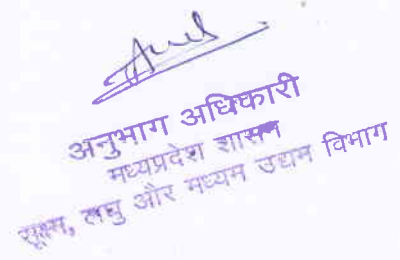 अनुभाग अधिकारी
मध्यप्रदेश शासन
सूक्ष्म, लघु और मध्यम उद्यम विभाग